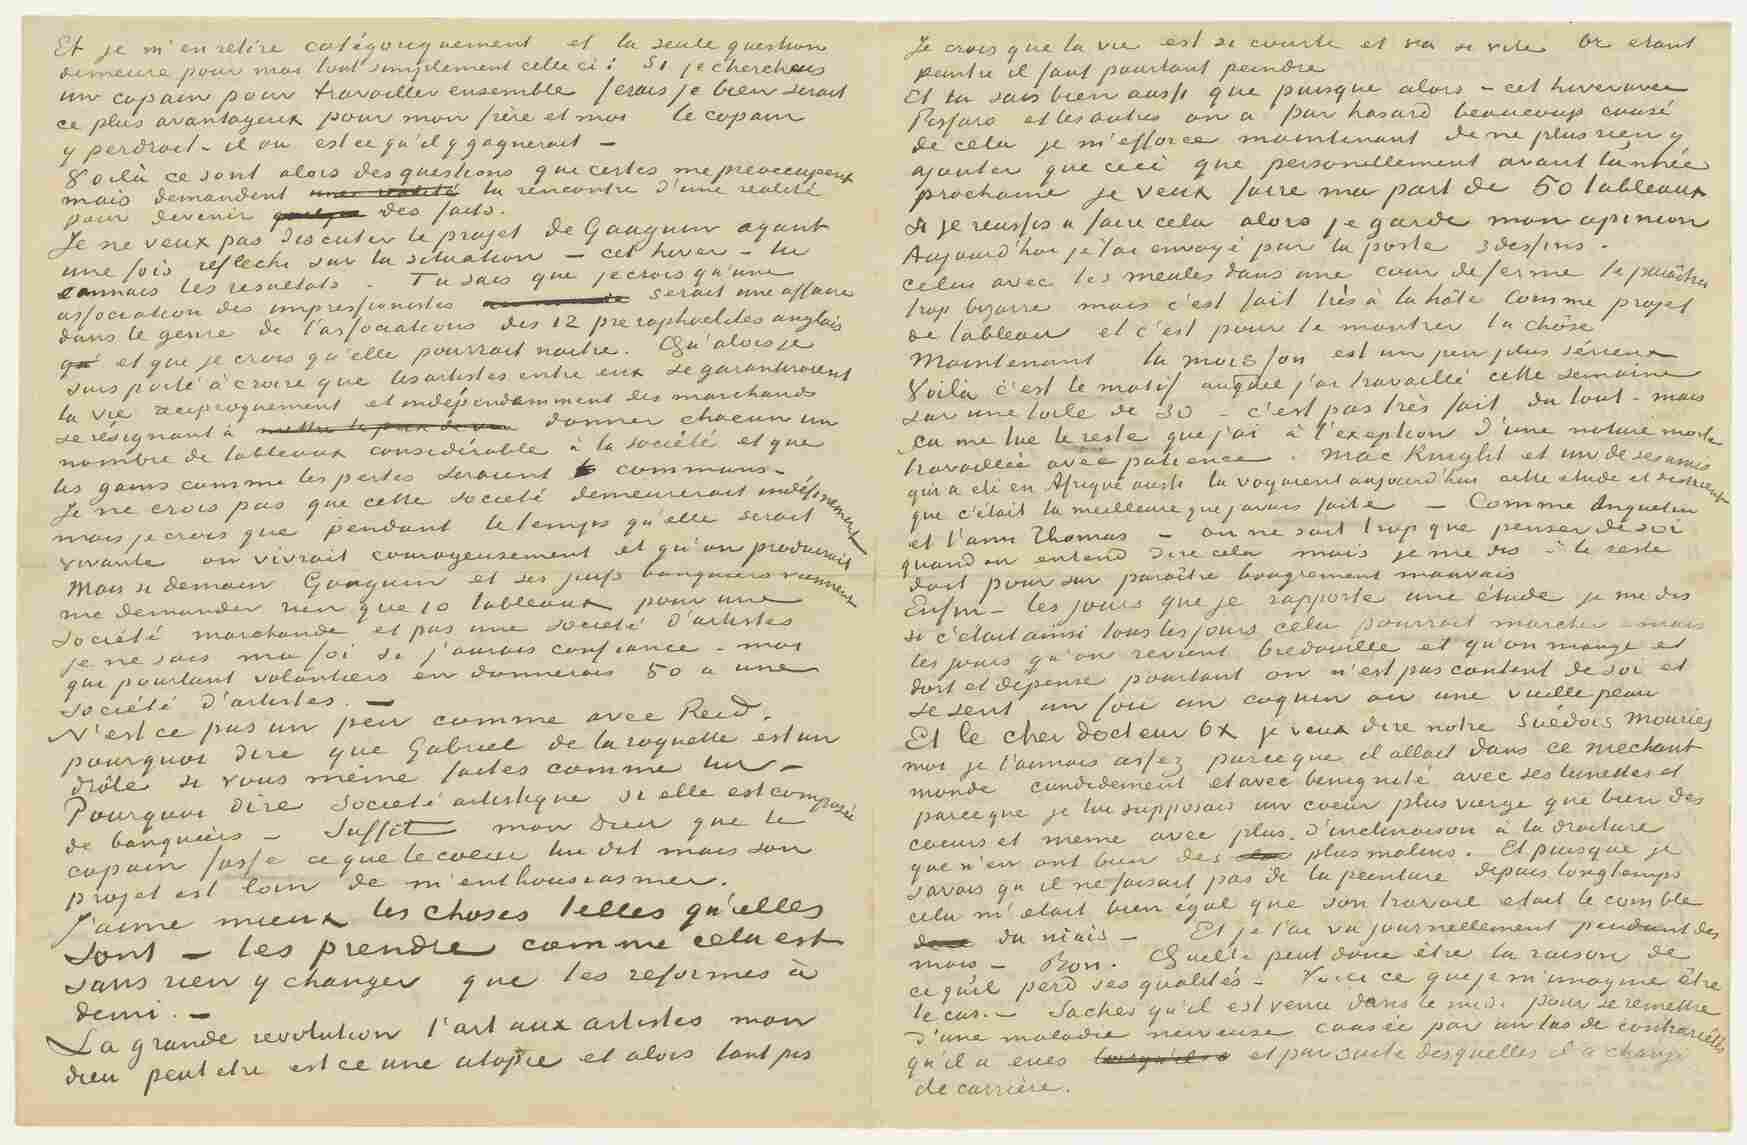 Et je m'en retire catégoriquement et la seule question
demeure pour moi tout simplement celle ci: Si je cherchais
un copain pour travailler ensemble ferais je bien serait
ce plus avantageux pour mon frère et moi le copain
y perdrait-il ou est ce qu'il y gagnerait –
Voilà ce sont alors des questions qui certes me préoccupent
mais demandent une réalité la rencontre d'une réalité
pour devenir quelque des faits.
Je ne veux pas discuter le projet de Gauguin ayant
une fois reflechi sur la situation – cet hiver – tu
connais les resultats. Tu sais que je crois qu'une
association des impressionistes serait une affaire
dans le genre de l'associations des 12 preraphaelites anglais
qu' et que je crois qu'elle pourrait naitre. Qu'alors je
suis porté à croire que les artistes entre eux se garantiraient
la vie reciproquement et indépendamment des marchands
se résignant à mettre le prix de donner chacun un
nombre de tableaux considérable à la société et que
les gains comme les pertes seraient communs.
Je ne crois pas que cette société demeurerait indéfiniment
mais je crois que pendant le temps qu'elle serait
vivante on vivrait courageusement et qu'on produirait
Mais si demain Gauguin et ses juifs banquiers viennent
me demander rien que 10 tableaux pour une
société marchande et pas une société d'artistes
je ne sais ma foi si j'aurais confiance – moi
qui pourtant volontiers en donnerais 50 a une
société d'artistes. –
N'est ce pas un peu comme avec Reid.
pourquoi dire que Gabriel de la roquette est un
drôle si vous même faites comme lui –
Pourquoi dire société artistique si elle est composée
de banquiers – Suffit mon dieu que le
copain fasse ce que le coeur lui dit mais son
projet est loin de m'enthousiasmer.
J'aime mieux les choses telles qu'elles
sont – les prendre comme cela est
sans rien y changer que les reformes à
demi. –
La grande revolution l'art aux artistes mon
dieu peut etre est ce une utopie et alors tant pis
Je crois que la vie est si courte et va si vite Or etant
peintre il faut pourtant peindre
Et tu sais bien aussi que puisque alors – cet hiver avec
Pissaro et les autres on a par hasard beaucoup causé
de cela je m'efforce maintenant de ne plus rien y
ajouter que ceci que personellement avant l'année
prochaine je veux faire ma part de 50 tableaux
si je reussis a faire cela alors je garde mon opinion
Aujourd'hui je t'ai envoyé par la poste 3 dessins.
celui avec les meules dans une cour de ferme te paraîtra
trop bizarre mais c'est fait très à la hâte comme projet
de tableau et c'est pour te montrer la chôse
Maintenant la moisson est un peu plus sérieux
Voilà c'est le motif auquel j'ai travaillé cette semaine
sur une toile de 30 – c'est pas très fait du tout – mais
ça me tue le reste que j'ai à l'exeption d'une nature morte
travaillée avec patience. Mac Knight et un de ses amis
qui a eté en Afrique aussi la voyaient aujourd'hui cette étude et disaient
que c'était la meilleure que j'avais faite – Comme Anquetin
et l'ami Thomas – on ne sait trop que penser de soi
quand on entend dire cela mais je me dis: le reste
doit pour sur paraître bougrement mauvais
Enfin – les jours que je rapporte une étude je me dis
si c'était ainsi tous les jours cela pourrait marcher mais
les jours qu'on revient bredouille et qu'on mange et
dort et dépense pourtant on n'est pas content de soi et
se sent un fou un coquin ou une vieille peau
Et le cher docteur Ox je veux dire notre Suédois Mouries
moi je l'aimais assez parceque il allait dans ce mechant
monde candidement et avec benignité avec ses lunettes et
parceque je lui supposais un coeur plus vierge que bien des
coeurs et meme avec plus d'inclinaison à la droiture
que n'en ont bien des plus malins. Et puisque je
savais qu'il ne faisait pas de la peinture depuis longtemps
cela m'etait bien égal que son travail etait le comble
du niais – Et je l'ai vu journellement pendant des
mois – Bon. Quelle peut donc être la raison de
ce qu'il perd ses qualités – Voici ce que je m'imagine être
le cas. – Saches qu'il est venu dans le midi pour se remettre
d'une maladie nerveuse causée par un tas de contrariétés
qu'il a eues lorsqu'il a et par suite desquelles il a changé
de carrière.